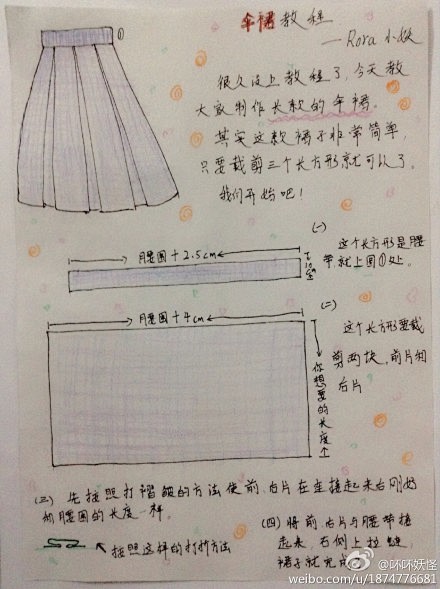 伞裙教程
—Rora 小妖
很久没上教程了，今天教
大家制作长款的伞裙。
其实这款裙子非常简单，
只要裁剪三个长方形就可以了，
我们开始吧！
①
(一)
腰围+2.5cm
10cm
这个长方形是腰
带，就上图①处。
(二)
腰围+4cm
你想要的长度
这个长方形要裁
剪两块，前片和
后片
(三) 先按照打褶皱的方法使前、后片在连接起来后刚好
和腰围的长度一样。
按照这样的打折方法
(四) 将前、后片与腰带接
起来，右侧上拉链，
裙子就完成
@吥吥妖怪
weibo.com/u/1874776681